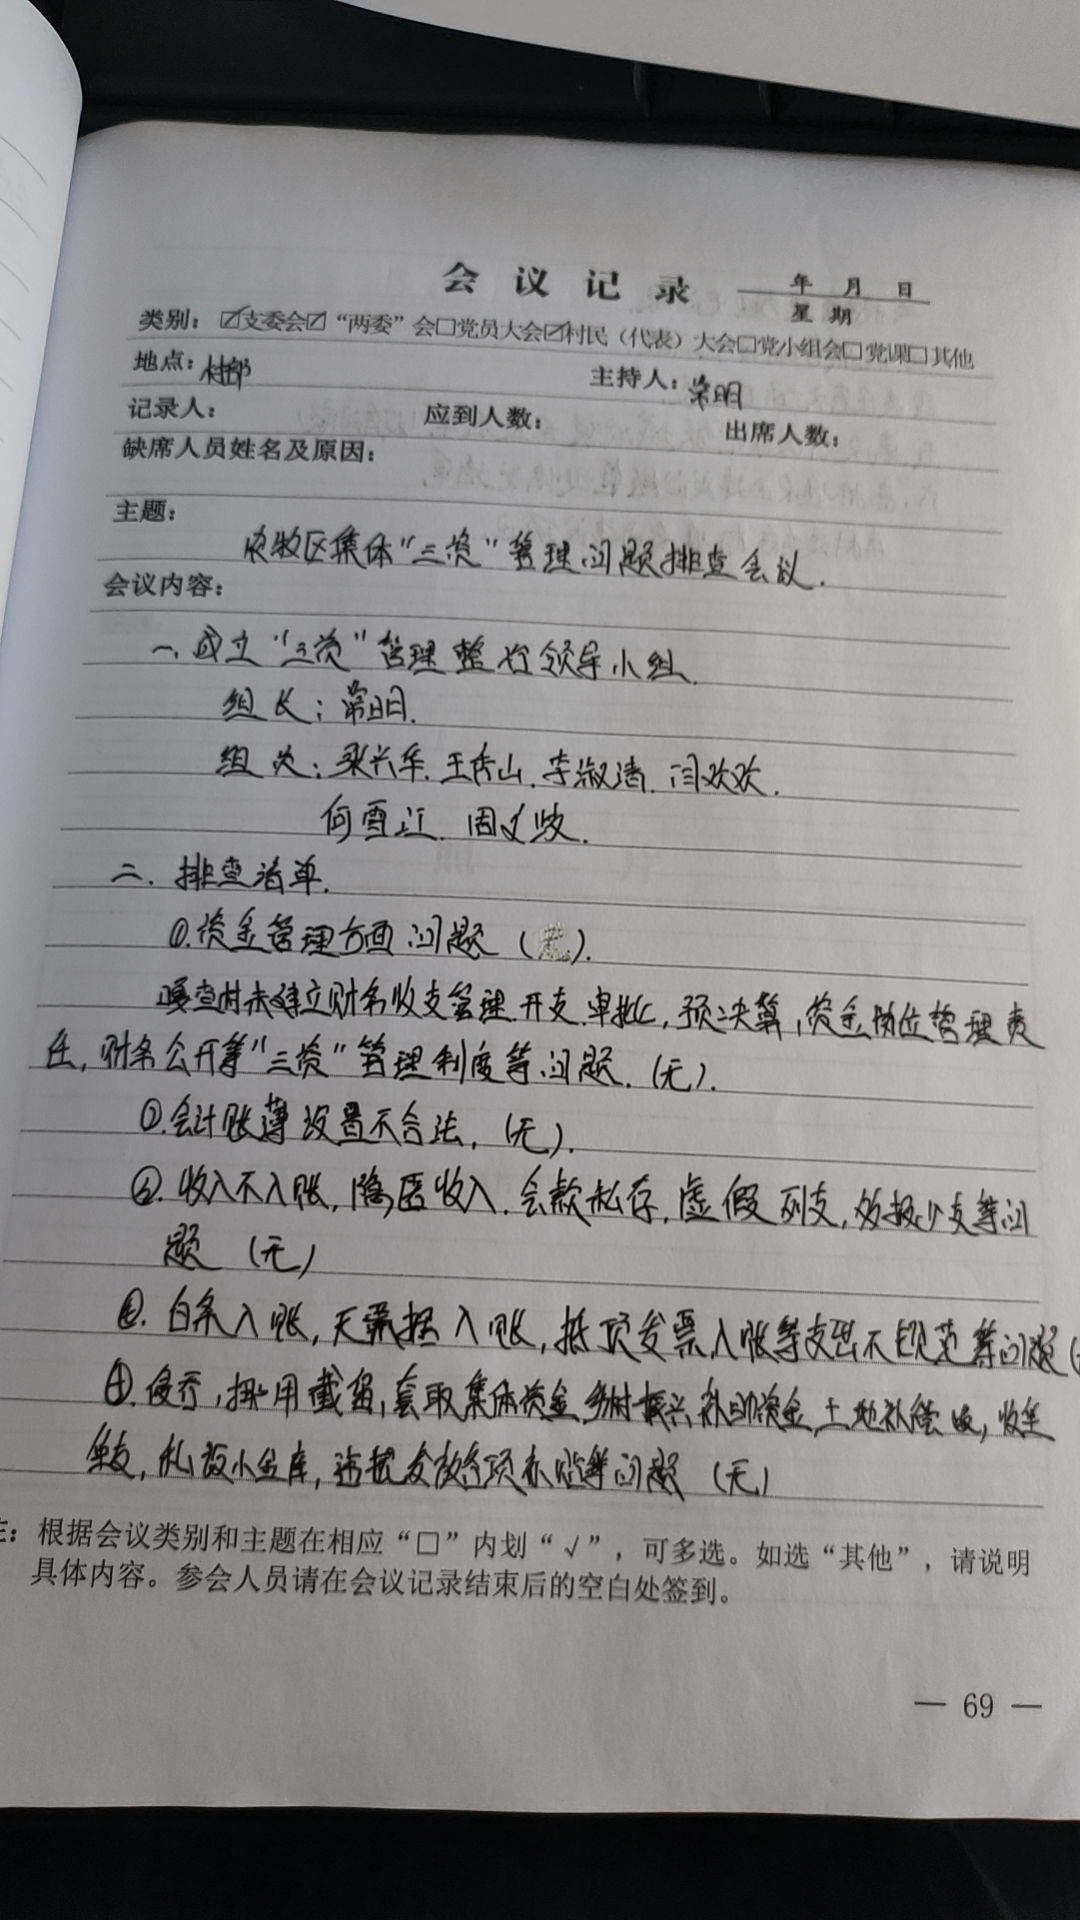 会议记录
年 月 日
星 期
类别：☑支委会☑“两委”会□党员大会☑村民（代表）大会□党小组会□党课□其他
地点：村部 主持人：常明
记录人： 应到人数： 出席人数：
缺席人员姓名及原因：
主题：
农牧区集体“三资”管理问题排查会议.
会议内容：
一、成立“三资”管理整治领导小组.
组长：常明.
组员：梁兴华.王秀山.李淑清.闫欢欢.
何雪江.周文
二.排查清单.
①.资金管理方面问题（无）.
嘎查村未建立财务收支管理.开支.审批,预决算,资金岗位管理责
任,财务公开等“三资”管理制度等问题.(无).
②.会计账薄设置不合法,(无).
③.收入不入账,隐匿收入.公款私存,虚假列支,多报少支等问
题 (无)
④.白条入账,无票据入账,抵顶发票入账等支出不规范等问题(
⑤.侵吞,挪用截留,套取集体资金,乡村振兴补助资金,土地补偿,收坐
坐支,私设小金库,违规发放各项补贴等问题 (无)
注：根据会议类别和主题在相应“□”内划“√”，可多选。如选“其他”，请说明
具体内容。参会人员请在会议记录结束后的空白处签到。
— 69 —